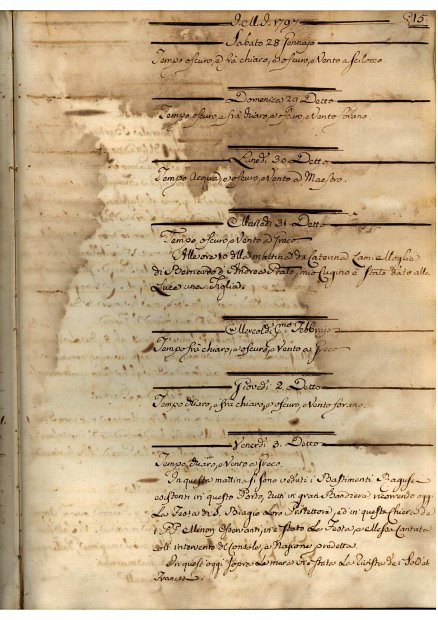 d. M. D. 1797
15
Sabato 28 Gennajo
Tempo oscuro, e frà chiaro, e oscuro, e Vento a Scilocco.
Domenica 29 Detto
Tempo oscuro, e frà chiaro, e oscuro, e Vento forano
Lunedi 30 Detto
Tempo Acqua, e oscuro, e Vento a Maestro.
Martedi 31 Detto
Tempo, oscuro, e Vento a Greco.
Alle ore 10 della mattina da Caterina Zani e Moglie
di Bernardo d' Andrea Prato, mio Cugino è stata dato alla
Luce una Figlia.
Mercoldi pmo. Febbrajo
Tempo frà chiaro, e oscuro, e Vento a Greco
Giovedi 2. Detto
Tempo chiaro, e frà chiaro, e oscuro, e Vento forano.
Venerdi 3. Detto
Tempo chiaro, e Vento a Greco.
In questa mattina si sono veduti i Bastimenti Ragusei
esistenti in questo Porto, tutti in gran Bandiera ricorrendo oggi
La Festa di S. Biagio Loro Protettore, ed in questa Chiesa de
i PP. Minori Osservanti, vi è stato La Festa, e Messa Cantata
coll' intervento del Console, e Nazione predetta.
In quest' oggi sopra le mura vi è stata La Rivista de i Soldati
Francesi